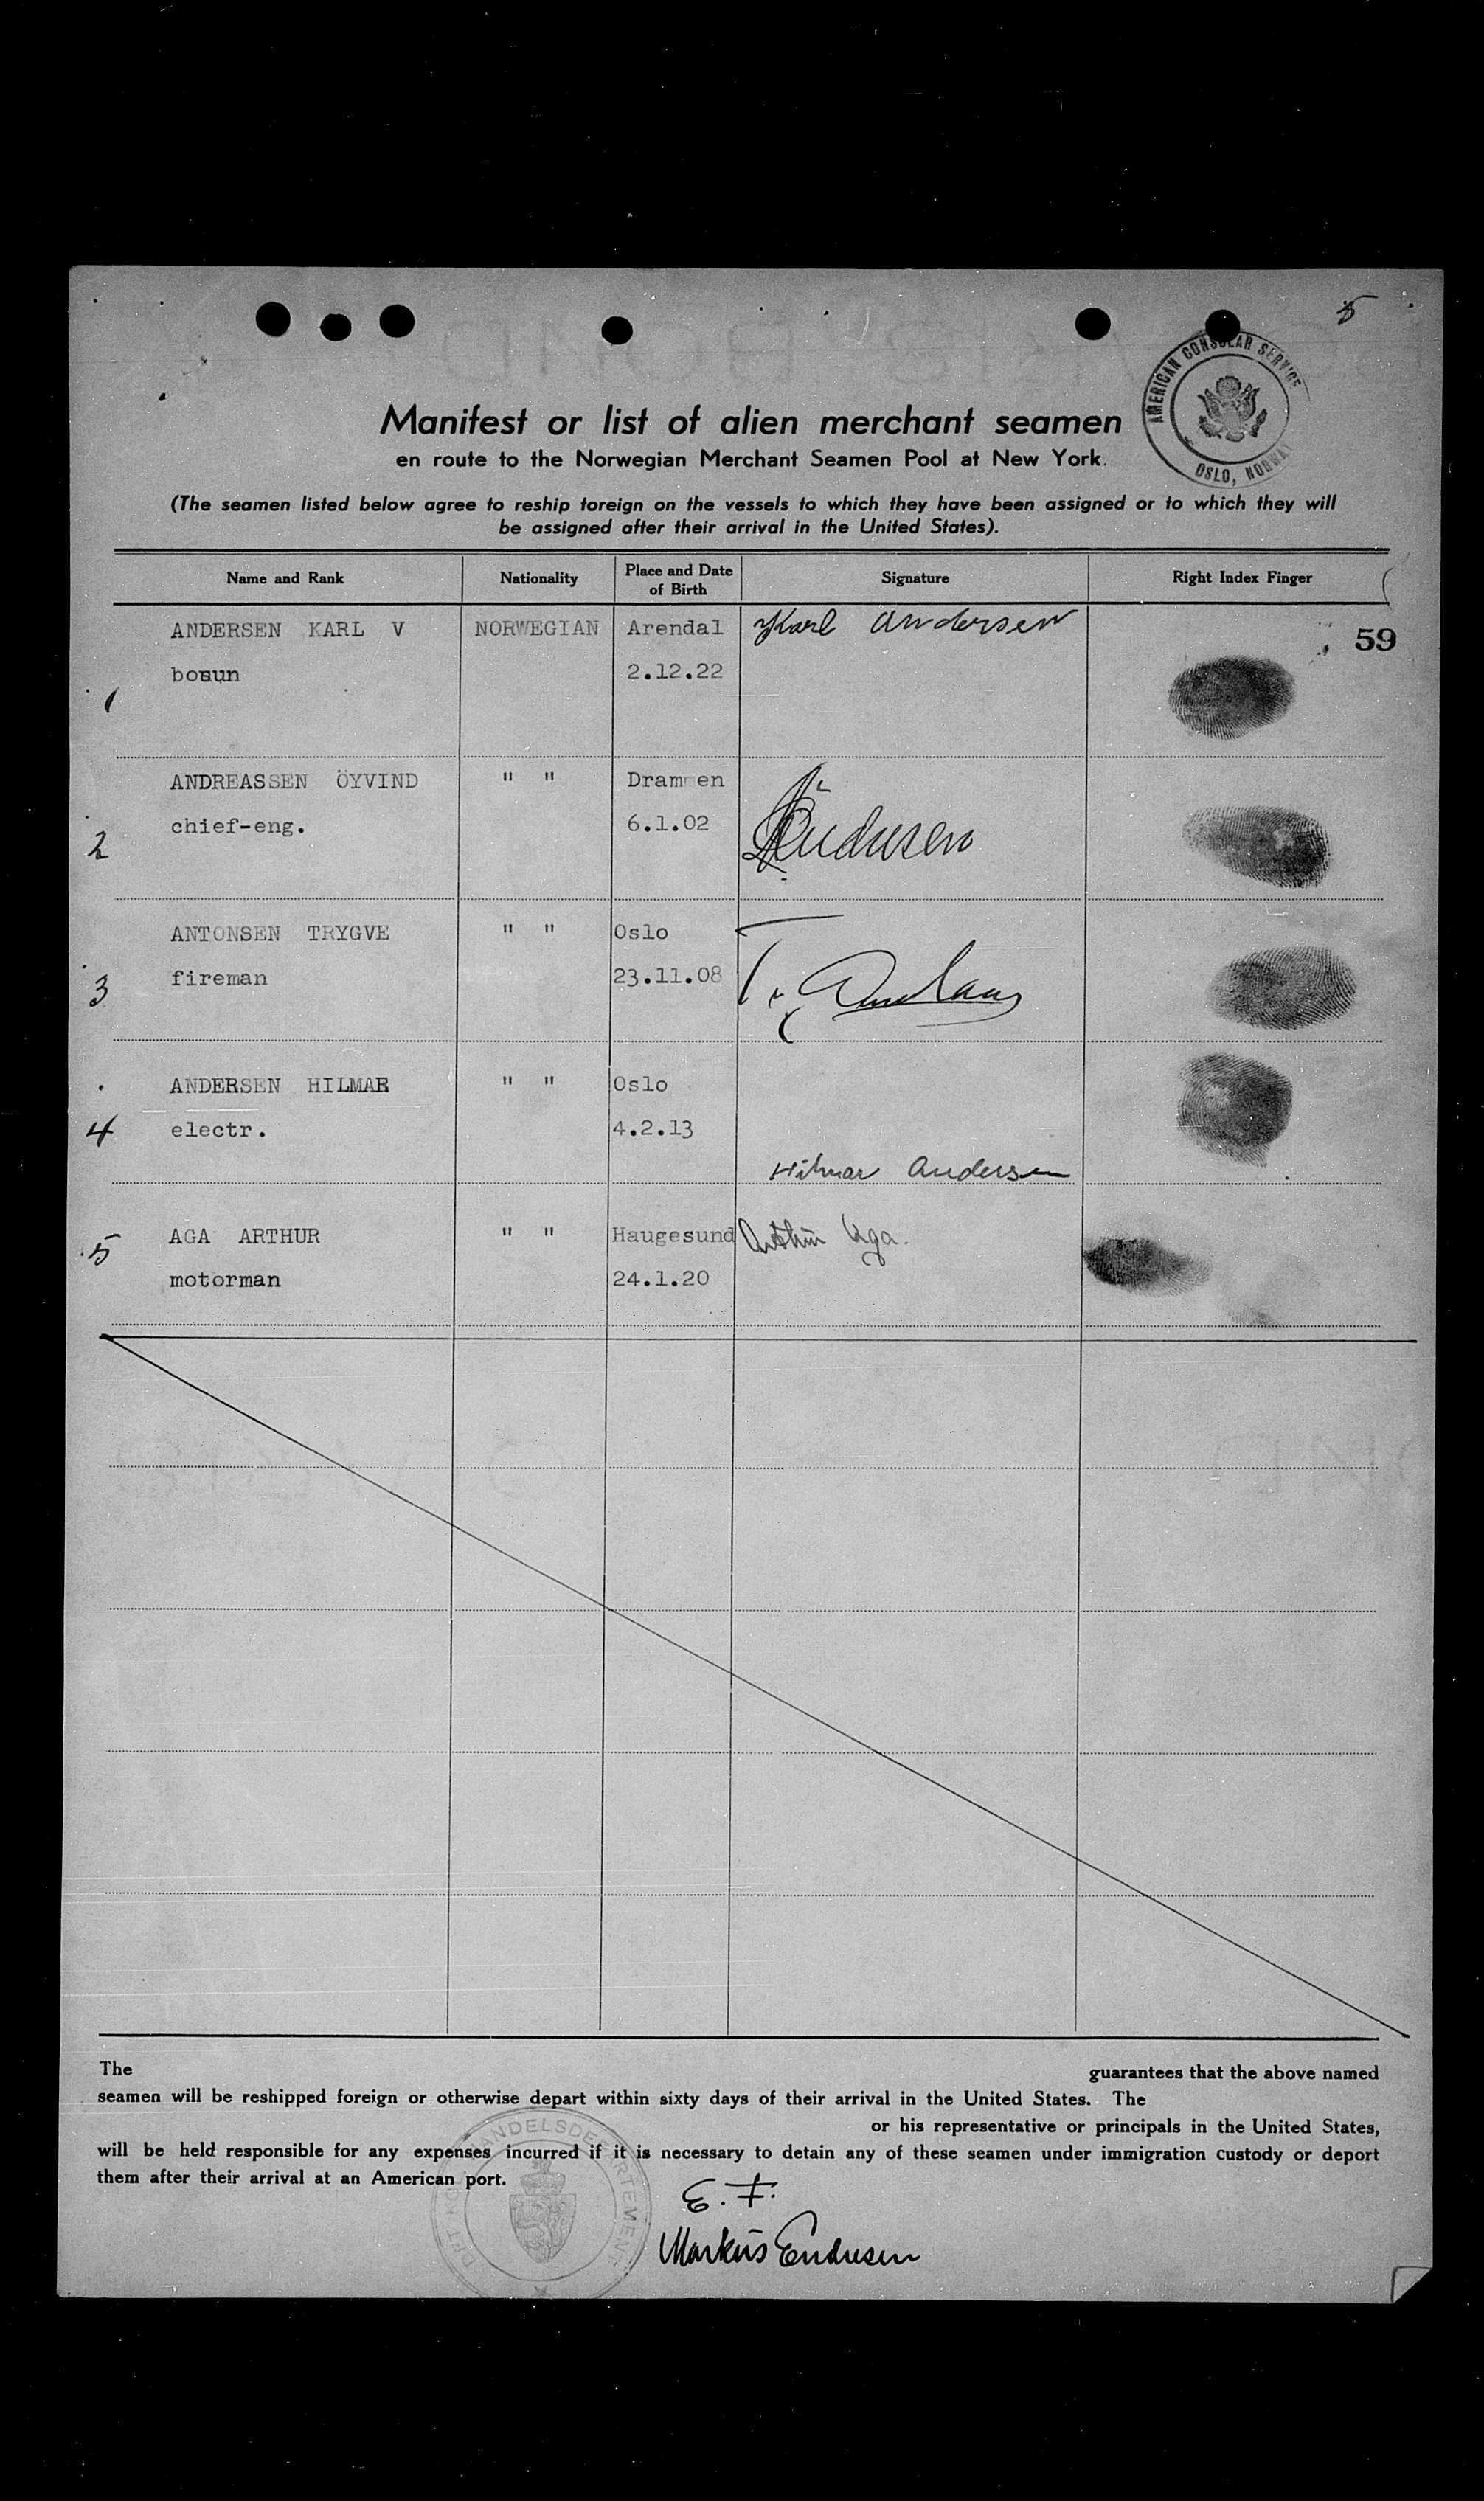 5
AMERICAN CONSULAR SERVICE
OSLO, NORWAY
Manifest or list of alien merchant seamen
en route to the Norwegian Merchant Seamen Pool at New York.
(The seamen listed below agree to reship foreign on the vessels to which they have been assigned or to which they will
be assigned after their arrival in the United States).
Name and Rank Nationality Place and Date of Birth Signature Right Index Finger
59
1 ANDERSEN KARL V NORWEGIAN Arendal Karl Andersen
bosun 2.12.22
2 ANDREASSEN ÖYVIND " " Drammen
chief-eng. 6.1.02
3 ANTONSEN TRYGVE " " Oslo
fireman 23.11.08
4 ANDERSEN HILMAR " " Oslo
electr. 4.2.13
Hilmar Andersen
5 AGA ARTHUR " " Haugesund Arthur Aga.
motorman 24.1.20
The guarantees that the above named
seamen will be reshipped foreign or otherwise depart within sixty days of their arrival in the United States. The
or his representative or principals in the United States,
will be held responsible for any expenses incurred if it is necessary to detain any of these seamen under immigration custody or deport
them after their arrival at an American port.
E. F.
Markus Endresen